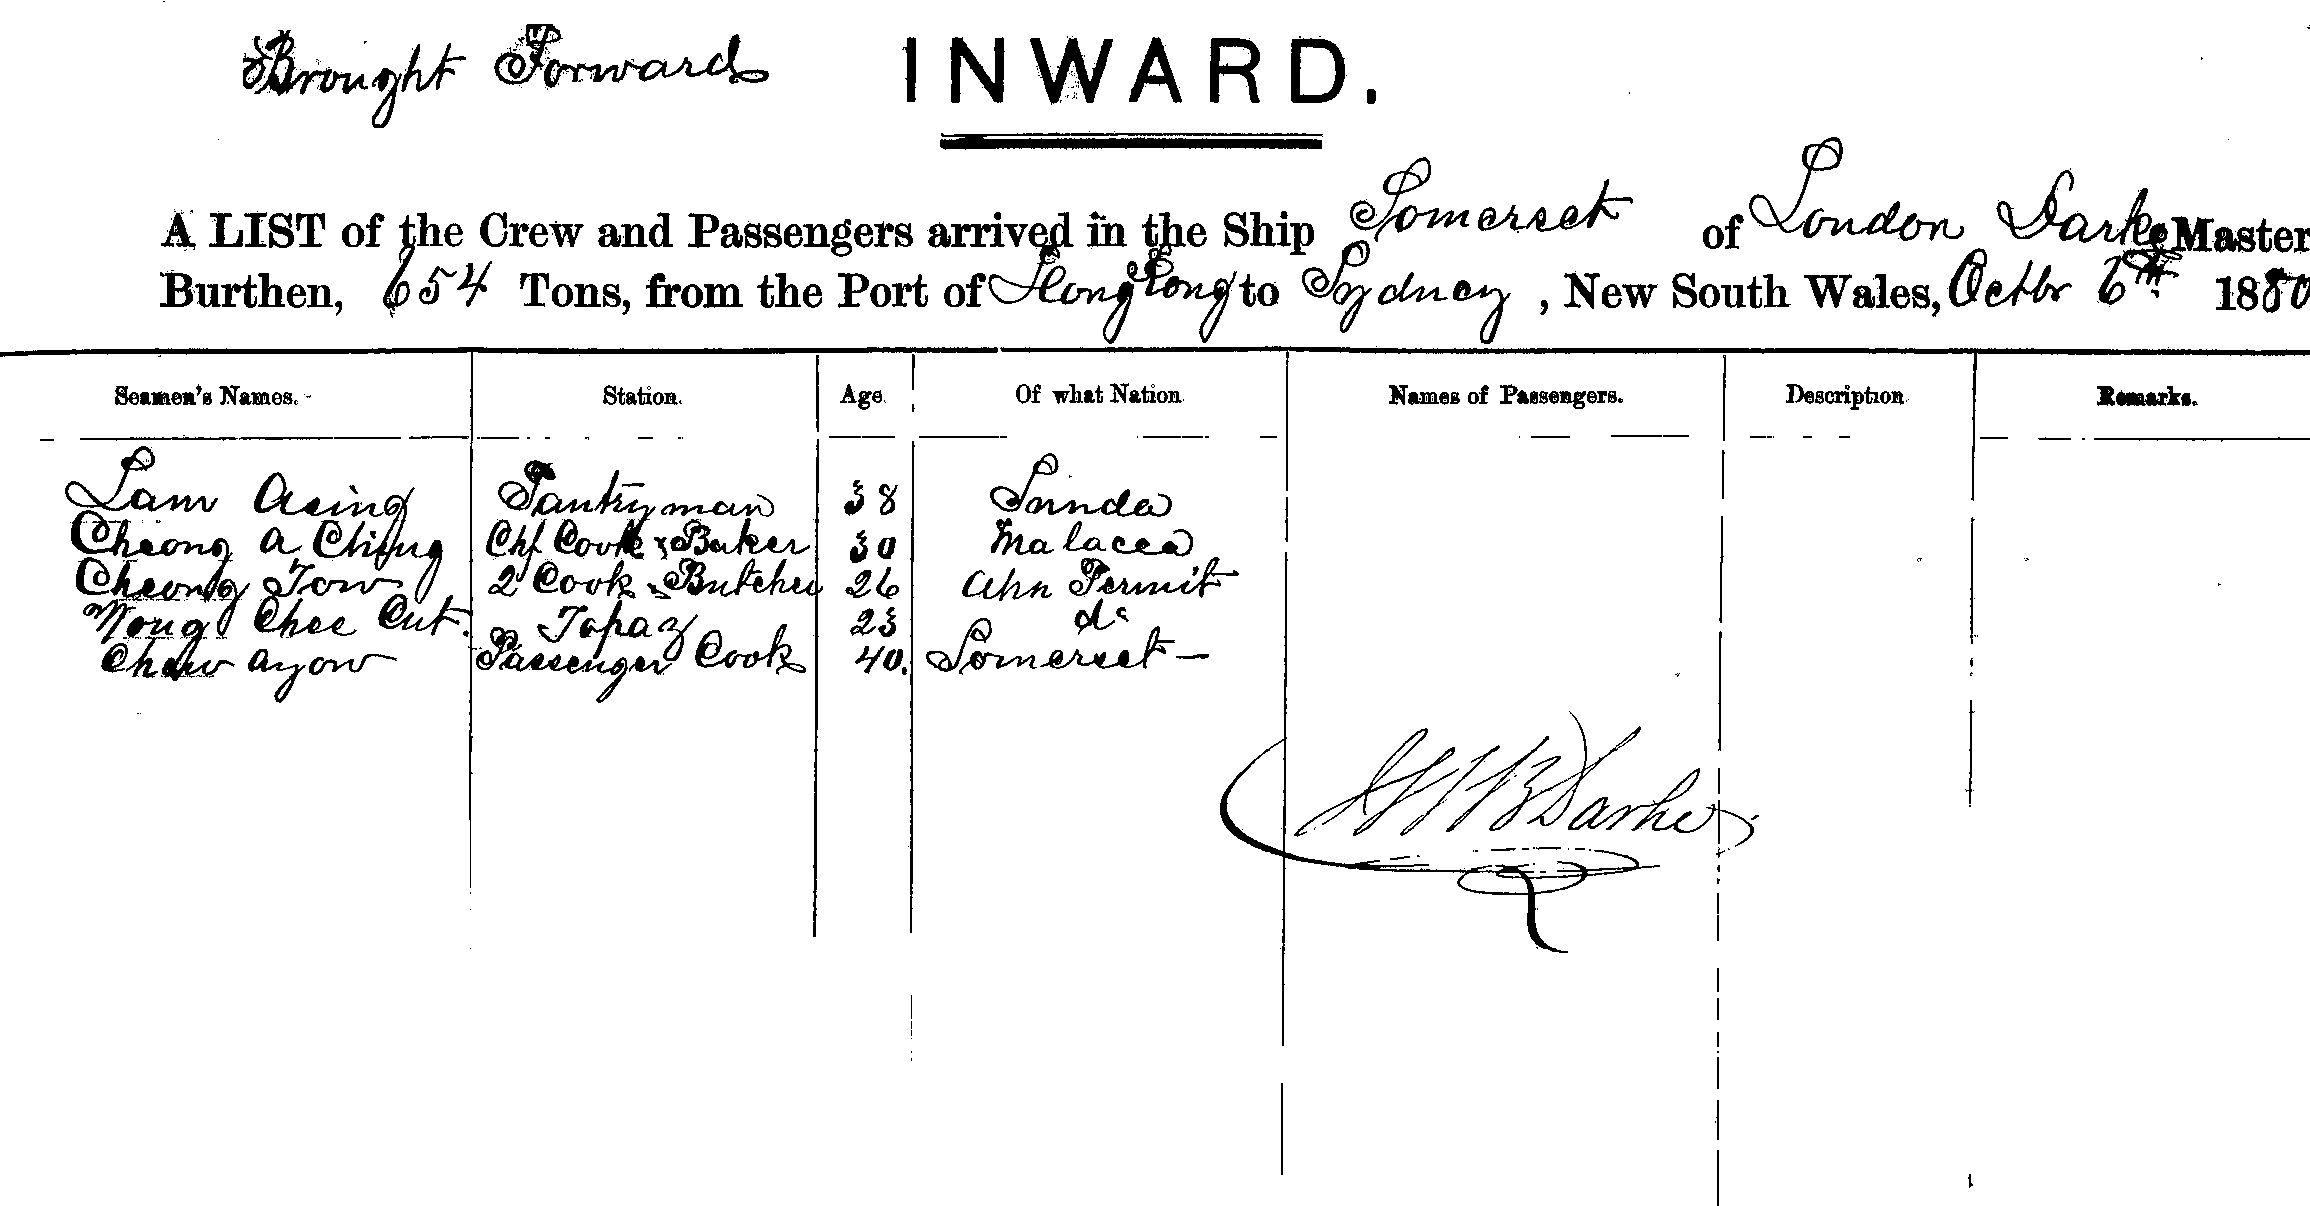 Brought Forward INWARD.
A LIST of the Crew and Passengers arrived in the Ship Somerset of London Darke Master
Burthen, 654 Tons, from the Port of Hong Kong to Sydney, New South Wales, Octbr 6th 1880
Seamen's Names. Station. Age. Of what Nation Names of Passengers. Description Remarks.
Lam Asing Pantryman 38 Sunda
Cheong A Ching Chf Cook & Baker 30 Malacca
Cheong Tow 2 Cook & Butcher 26 Permit
Wong Chee Cut. Topaz 23 do
Chew Ayow Passenger Cook 40. Somerset —
Darke